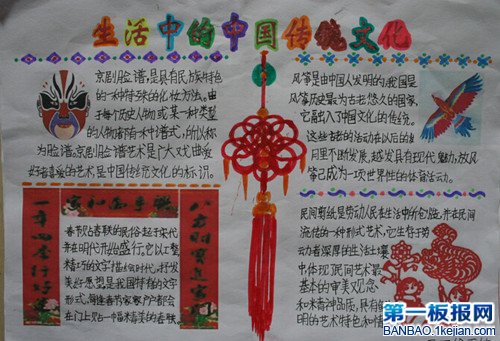 生活中的中国传统文化
京剧脸谱,是具有民族特色
的一种特殊的化妆方法。由
于每个历史人物或某一种类型
的人物都有一种谱式,所以称
为脸谱。京剧脸谱艺术是广大戏曲爱
好者喜爱的艺术,是中国传统文化的标识。
风筝是由中国人发明的,我国是
风筝历史最为古老悠久的国家,
它融入了中国文化的传统。
这些古老的活动在以后的岁
月里不断发展,越发具有现代魅力,放风
筝已成为一项世界性的体育活动。
家和万事兴
八方财宝进家门
春节贴春联的民俗起于宋代
并在明代开始盛行,它以工整
精巧的文字描绘时代,抒发
美好愿望,是我国特有的文学
形式,每逢春节家家户户都会
在门上贴一幅
民间剪纸是劳动人民在生活中所创造,并在民间
流传的一种形式艺术,它生存于劳
动者深厚的生活土壤
中体现民间艺术最
基本的审美观念
和精神品质,具有
明的艺术特色和情
第一板报网
BANBAO.1kejian.com